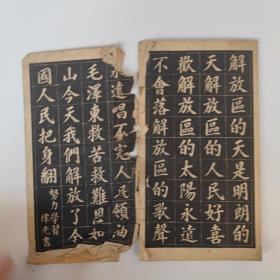 解放區的天是明朗的
天解放區的人民好喜
歡解放區的太陽永遠
不會落解放區的歌聲
永遠唱不完人民領袖
毛澤東救苦救難恩如
山今天我們解放了全
國人民把身翻
努力學習
律光書